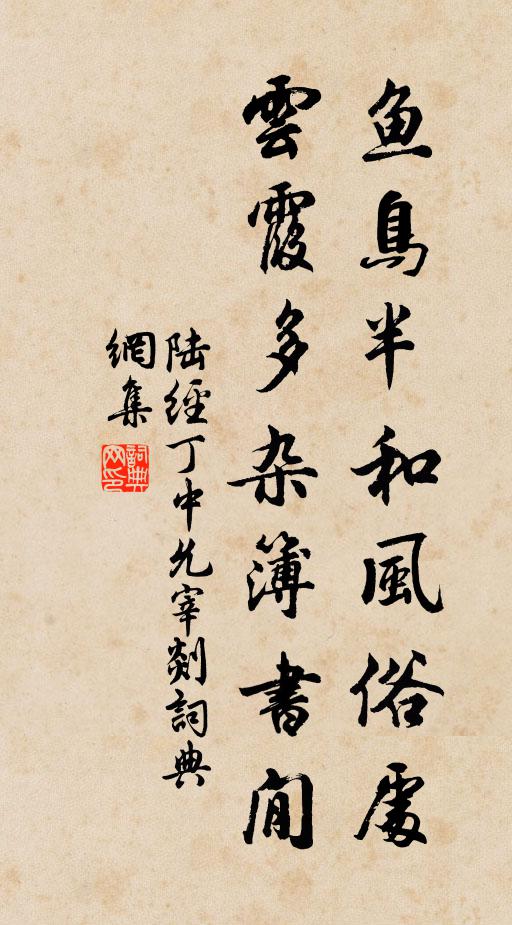 鱼鳥半和風俗處
雲霞多杂簿書間
陆經丁中允宰剡詞典
網集
詞典網印